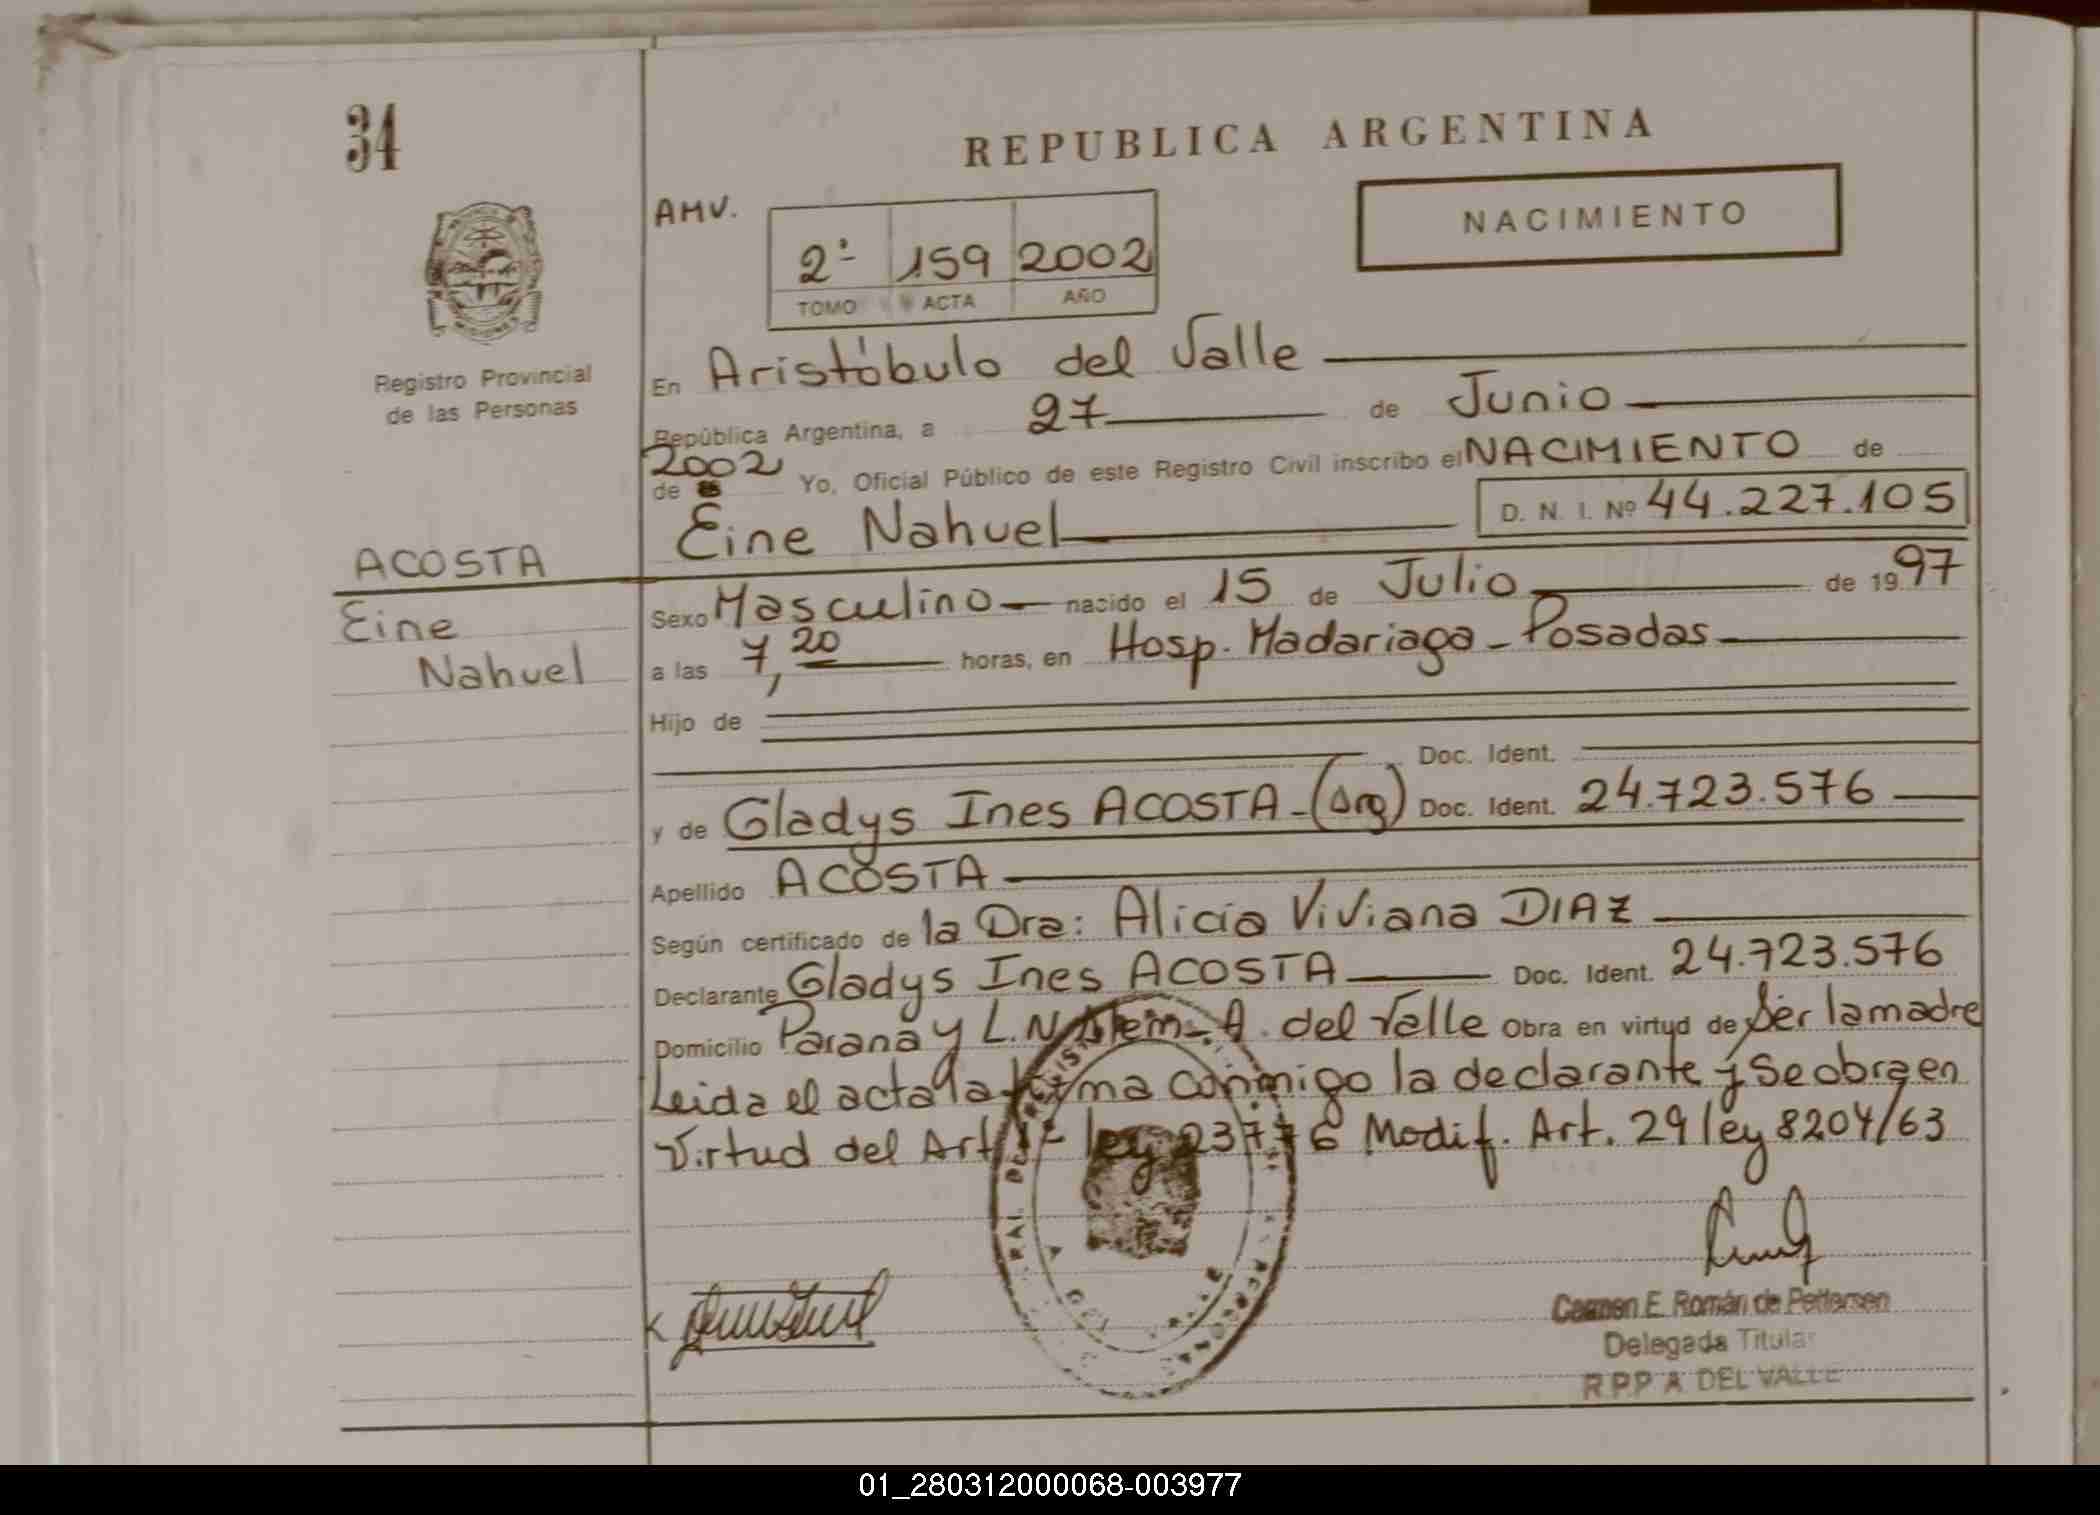 34
REPUBLICA ARGENTINA
NACIMIENTO
AMV.
2º 159 2002
TOMO ACTA AÑO
Registro Provincial
de las Personas
En Aristóbulo del Valle
República Argentina, a 27 de Junio
2002
de Yo, Oficial Público de este Registro Civil inscribo el NACIMIENTO de
Eine Nahuel D. N. I. Nº 44.227.105
ACOSTA
Eine
Nahuel
Sexo Masculino nacido el 15 de Julio de 1997
a las 7,20 horas, en Hosp. Madariaga - Posadas
Hijo de
Doc. Ident.
y de Gladys Ines ACOSTA - (Arg) Doc. Ident. 24.723.576
Apellido ACOSTA
Según certificado de la Dra: Alicia Viviana DIAZ
Declarante Gladys Ines ACOSTA Doc. Ident. 24.723.576
Domicilio Parana y L.N. Alem - A. del Valle Obra en virtud de Ser la madre
Leida el acta la firma conmigo la declarante y se obra en
Virtud del Art ley 23776 Modif. Art. 29 ley 8204/63
Carmen E. Román de Pettersen
Delegada Titular
R.P.P A DEL VALLE
01_280312000068-003977